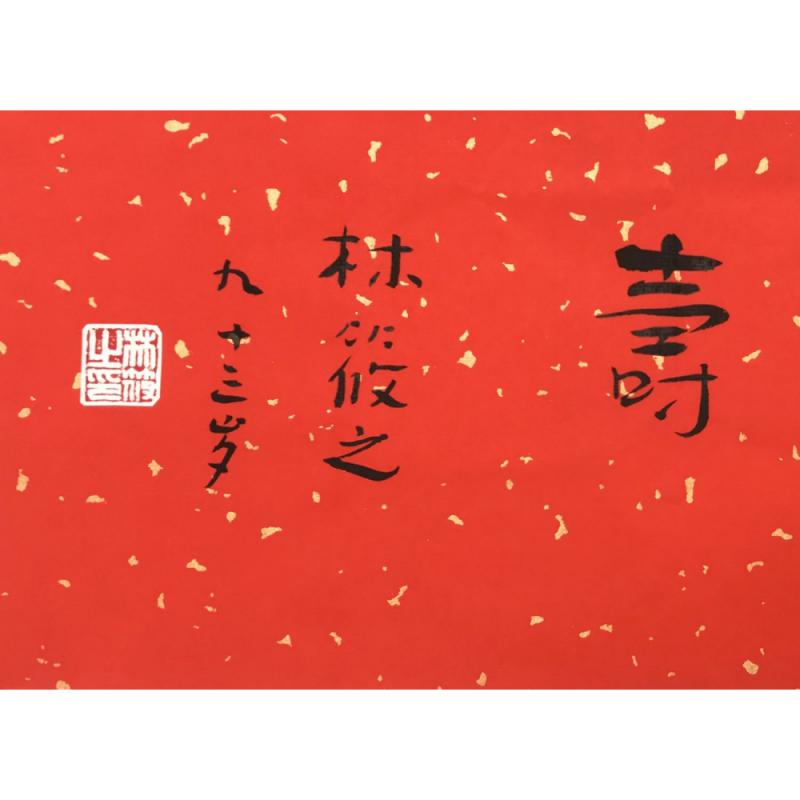 壽
林筱之
九十三岁
林筱之印